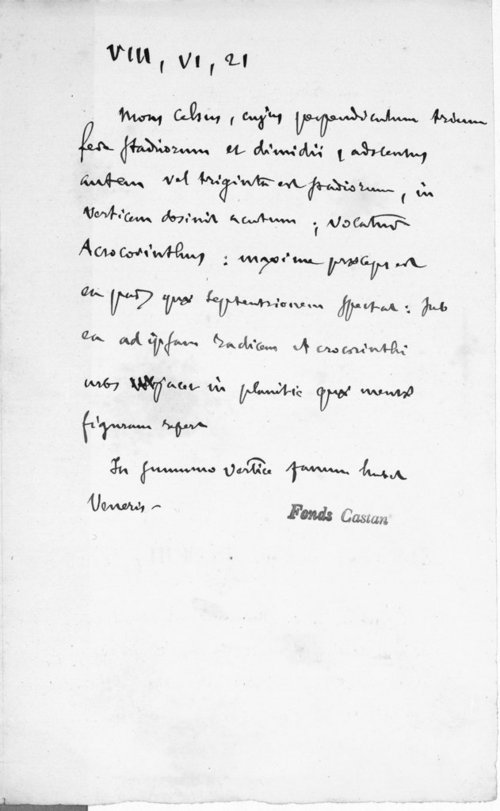 VIII, VI, 21
Mons celsus, cujus perpendiculum trium
fere stadiorum et dimidii, adscensus
autem vel triginta est stadiorum, in
verticem desinit acutum ; vocatur
Acrocorinthus : maxime præceps est
ea pars quæ septentrionem spectat : sub
ea ad ipsam radicem Acrocorinthi
urbs jacet in planitie quæ mensæ
figuram refert
In summo vertice fanum habet
Veneris –
Fonds Castan